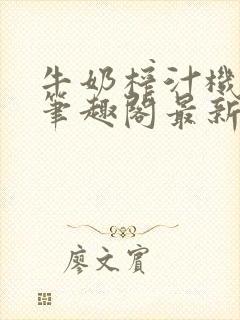 牛奶榨汁機
筆趣閣最新
廖文賓